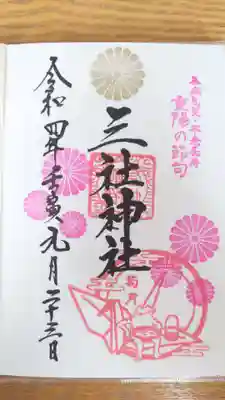 重陽の節句
三社神社
令和四年壬寅九月二十三日
菊月